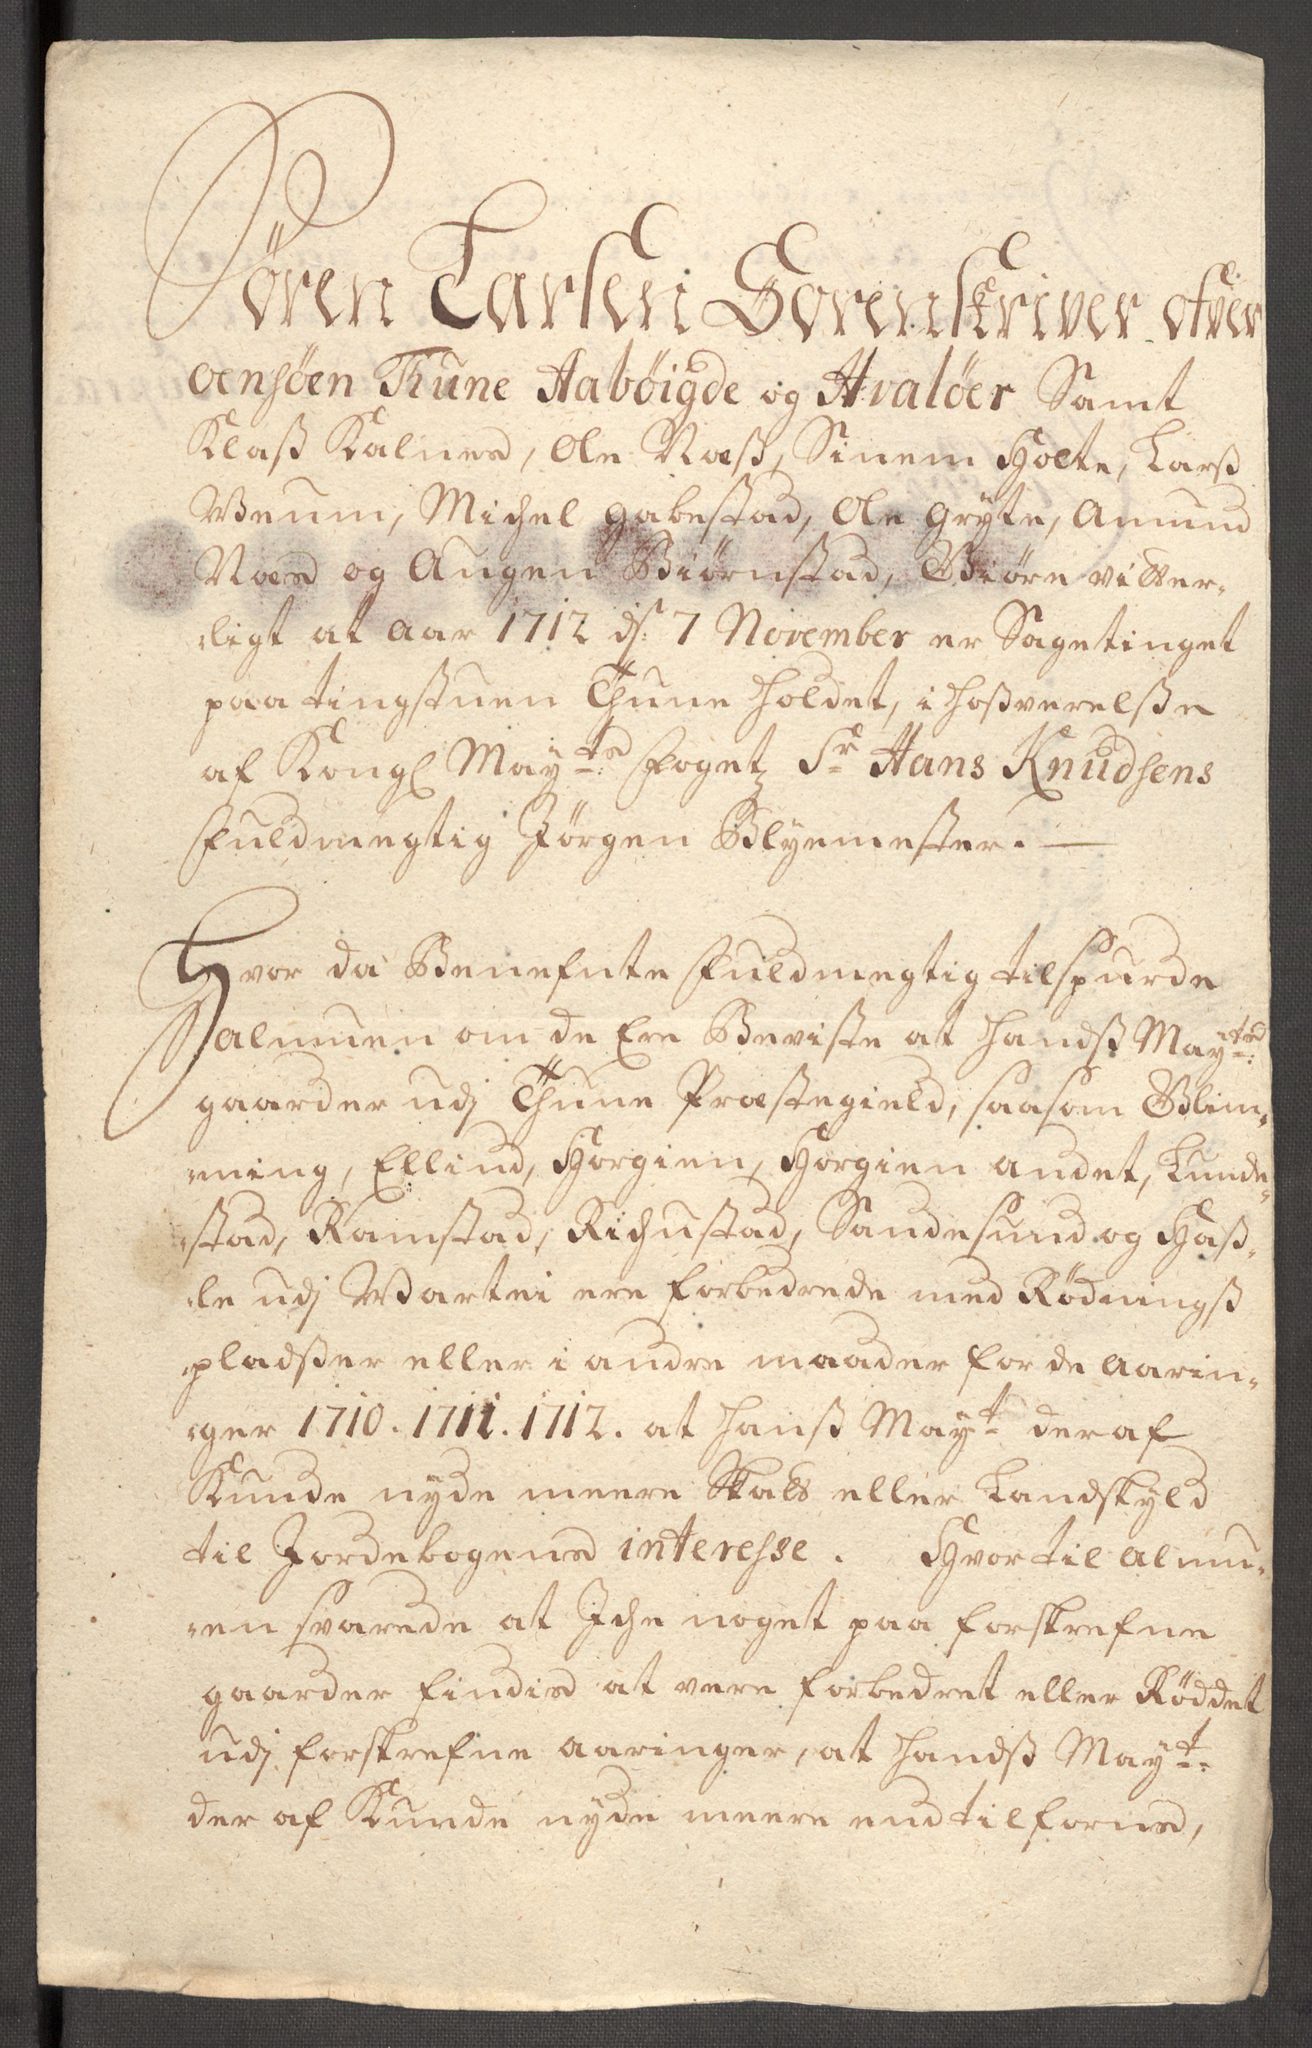 Sören Larsen Sorenskriver ofver
oensöen Thune Aaböigde og Hvalöer Samt
Klaß Kalnes, Ole Næß, Sinem Holte, Larß
Weum, Michel Gabestad, Ole Gryte, Amund
Næs og Augen Biörnstad, Giöre vitter-
ligt at aar 1712 d. 7 November er Sagetinget
paa tingstuen Thune holdet, i hoßverelße
af Kongl May.ts Foget Sr Hans Knudsens
Fuldmegtig Jörgen Blyemester.
Hvor da Benefnte Fuldmegtig tilspurde
Almuen om de Ere Beviste at handß May.ts
gaarder udj Thune Præstegield, saasom Glim-
ming, Ellind, Horgien, Horgien andet, Lunde-
stad, Ramstad, Richustad, Sandesund og Haß-
le udj Wartei ere forbedrede med Rödningß
pladßer eller i andre maader for de aarin-
ger 1710. 1711. 1712. at hanß May.t deraf
Kunde nyde meere Skatt eller Landskyld
til Jordebogens interesse. Hvortil almu-
en svarede at Iche noget paa forskrefne
gaarder findis at vere forbedret eller Röddet
udj forskrefne aaringer, at handß May.t
der af Kunde nyde meere end tilforns,